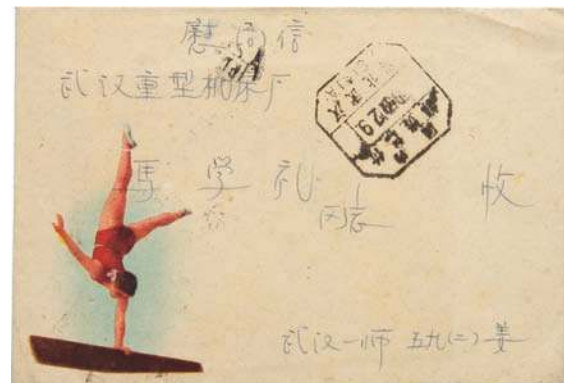 慰问信
武汉重型机床厂
馬学礼
同志
收
武汉一师 五九(二)姜